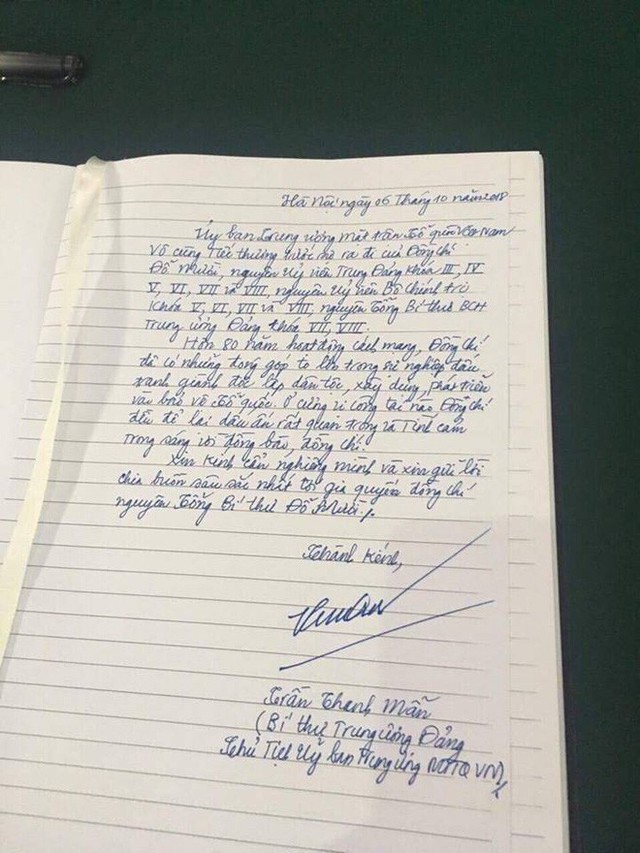 Hà Nội ngày 06 Tháng 10 năm 2018
Ủy ban Trung ương Mặt trận Tổ quốc Việt Nam
Vô cùng Tiếc thương trước sự ra đi của Đồng Chí
Đỗ Mười, nguyên Uỷ viên Trung Đảng Khóa III, IV
V, VI, VII và VIII, nguyên Uỷ viên Bộ Chính trị
Khóa V, VI, VII và VIII; nguyên Tổng Bí thư BCH
Trung ương Đảng khóa VII, VIII.
Hơn 80 năm hoạt động cách mạng, Đồng Chí
đã có những đóng góp to lớn trong sự nghiệp đấu
tranh giành độc lập dân tộc, xây dựng, phát triển
và bảo vệ Tổ quốc. Ở cương vị công tác nào Đồng Chí
đều để lại dấu ấn rất quan trọng và Tình cảm
trong sáng với đồng bào, đồng chí.
Xin Kính cẩn nghiêng mình và xin gửi lời
chia buồn sâu sắc nhất tới gia quyến đồng chí
nguyên Tổng Bí thư Đỗ Mười.
Thành Kính,
Trần Thanh Mẫn
(Bí thư Trung ương Đảng
Chủ Tịch Uỷ ban Trung ương MTTQ VN)